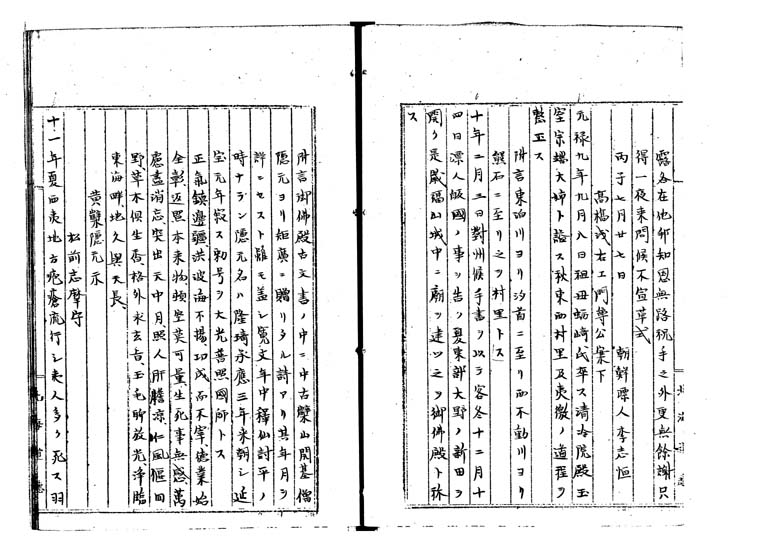 露各在他邦知恩無路祝手之外更無餘謝只
得一夜来問候不宣草式
丙子七月廿七日　朝鮮漂人李志恒
高橋浅右エ門尊公案下
元禄九年九月八日祖母蛎崎氏卒ス清冷院殿玉
室宗螺大姉ト諡ス秋東西村里及夷徼ノ道程ヲ
整正ス
附言東泊川ヨリ汐首ニ至リ西不動川ヨリ
熊石ニ至リ之ヲ村里トス
十年二月三日對州侯手書ヲ以テ客冬十二月十
四日漂人皈國ノ事ヲ告ク夏東部大野ノ新田ヲ
開ク是歳福山城中ニ廟ヲ建ツ之ヲ御佛殿ト称
ス
附言御佛殿古文書ノ中ニ中古檗山開基僧
隠元ヨリ矩廣ニ贈リタル詩アリ其年月ヲ
詳ニセスト雖モ盖シ寛文年中釋仙討平ノ
時ナラン隠元名ハ隆琦承應三年来朝シ延
宝元年寂ス勅号ヲ大光普照國師トス
正氣鎮邉疆洪波海不揚功成而不宰徳業始
全彰迈思本来物頓空莫可量生死事無感萬
慮盡消忘突出天中月照人肝膽凉仁風傴四
野草木倶生香格外永玄吉玉毛昕茲光浄臨
東海畔地久與天長
黄檗隠元示
松前志摩守
十一年夏西夷地古疱瘡流行シ夷人多ク死ス羽